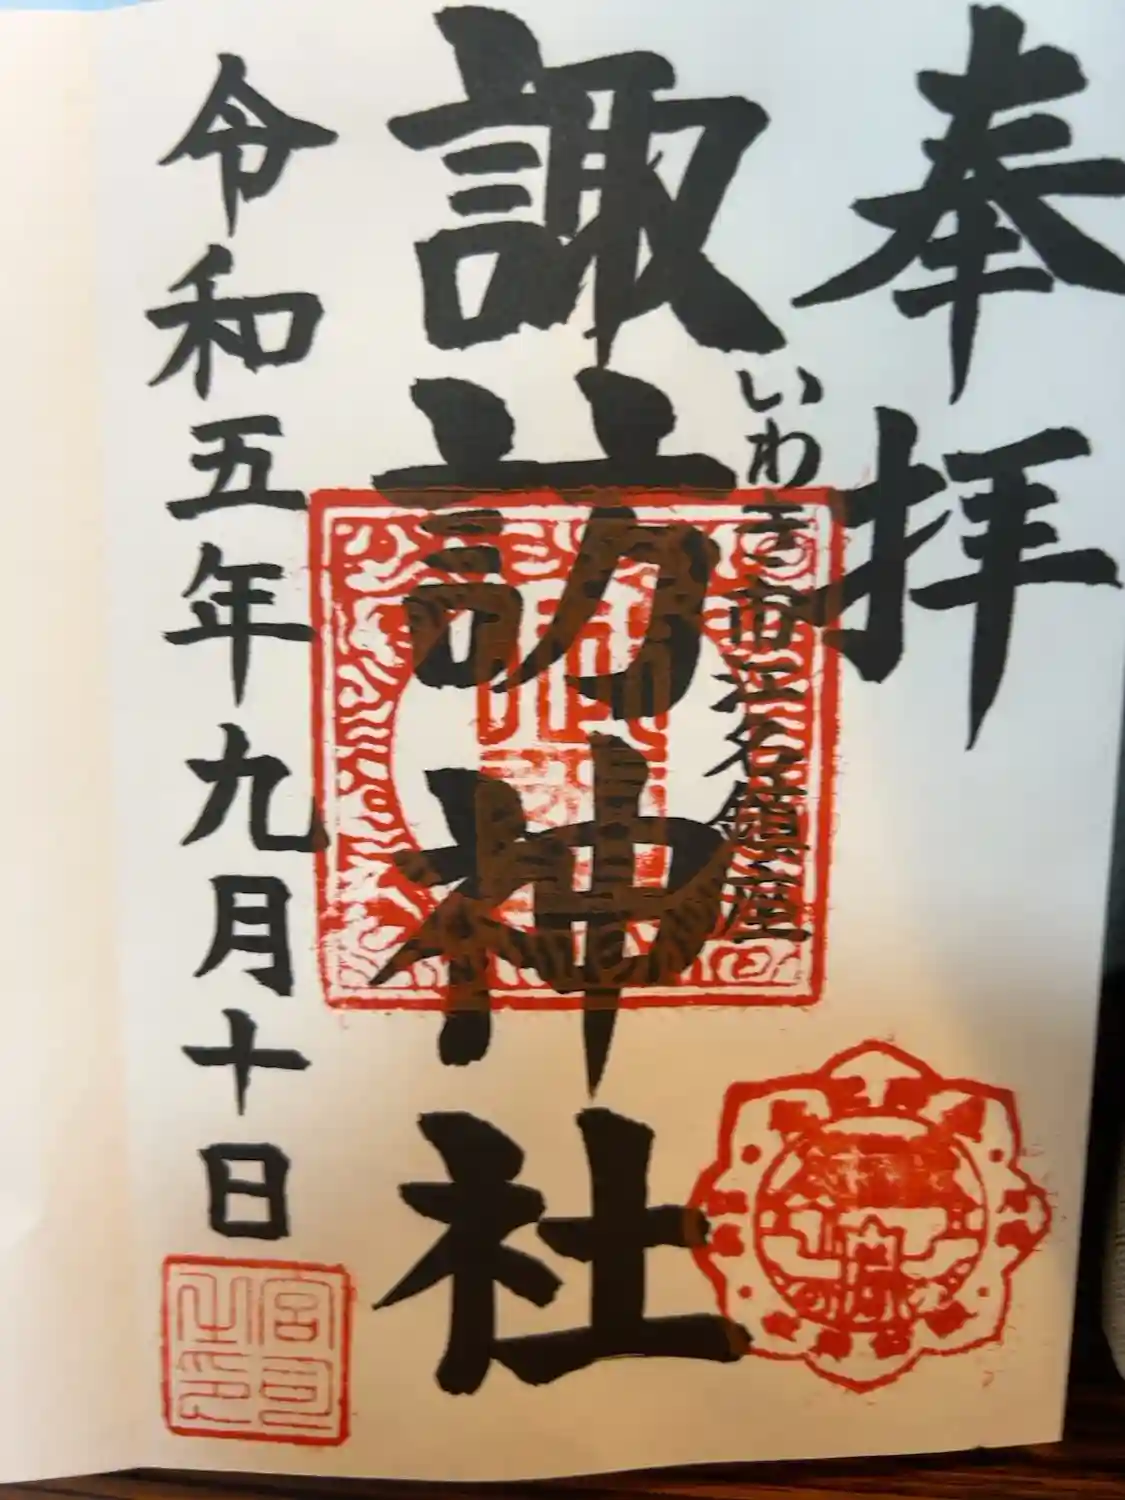 奉拝
いわき市江名鎮座
諏訪神社
令和五年九月十日
宮司之印